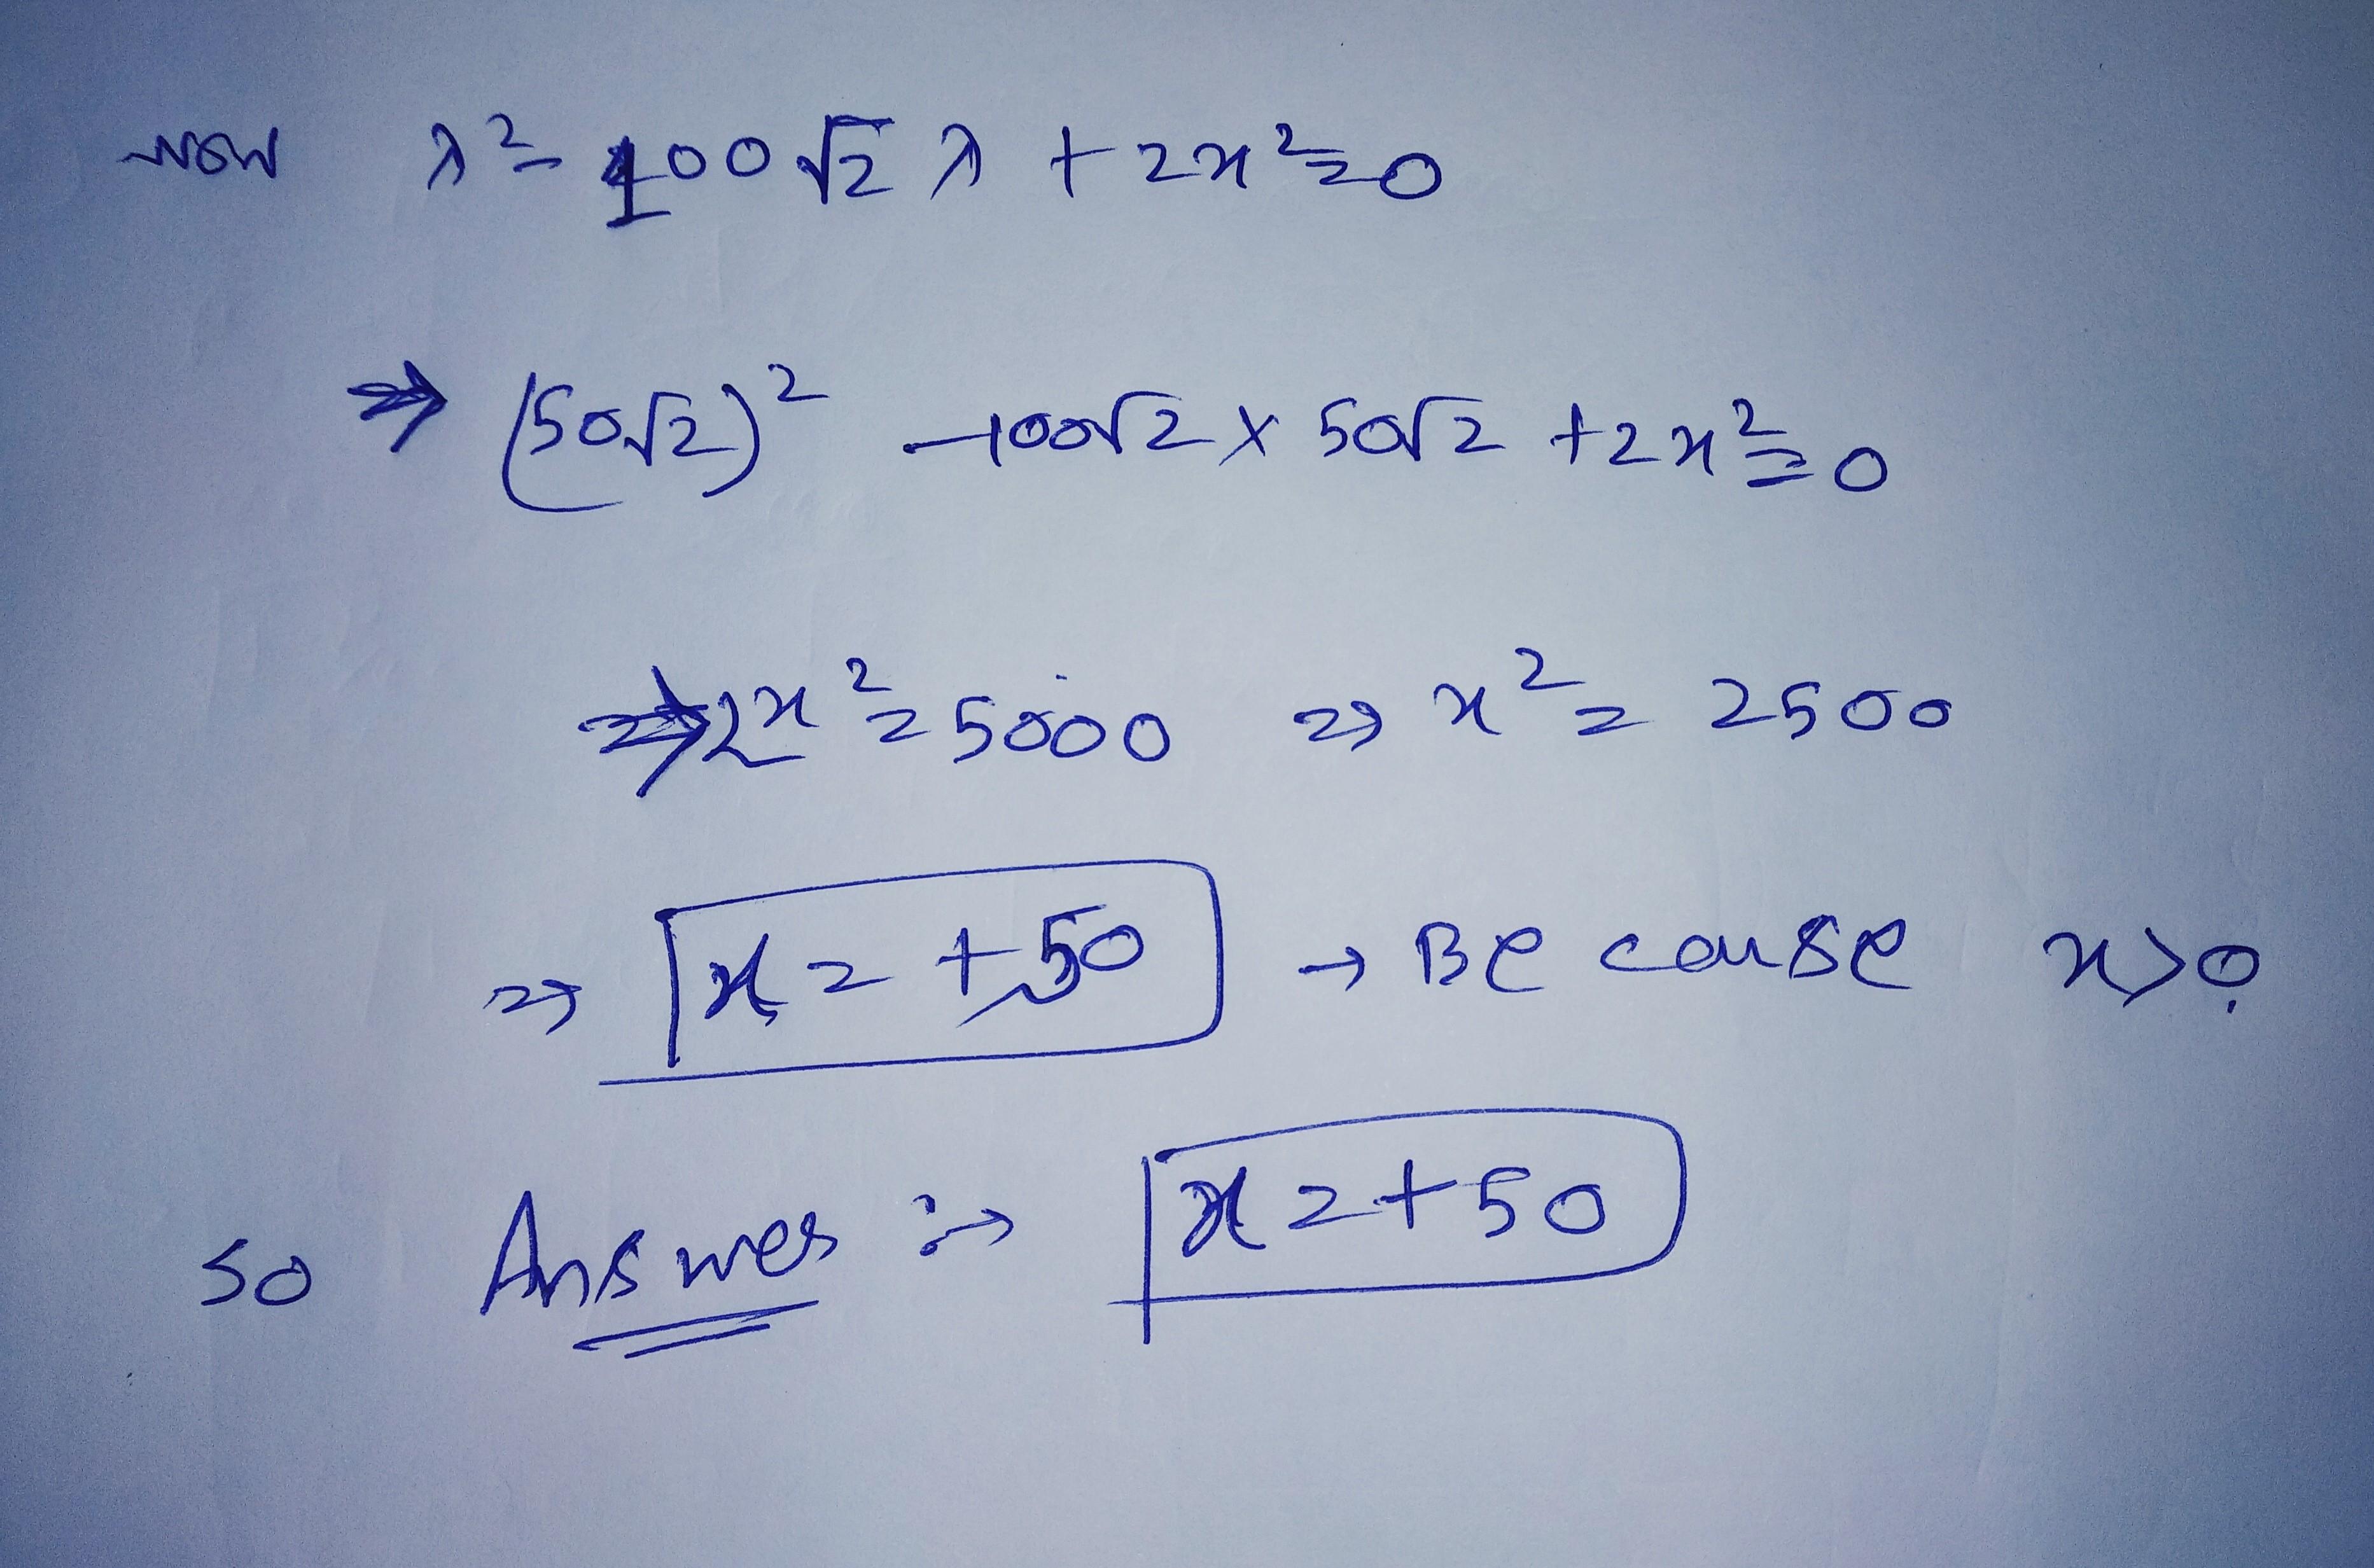 Now λ² - 100√2 λ + 2x² = 0
⇒ (50√2)² - 100√2 × 50√2 + 2x² = 0
⇒ 2x² = 5000 ⇒ x² = 2500
⇒ x = +50 → Because x>0.
So Answer :→ x = +50